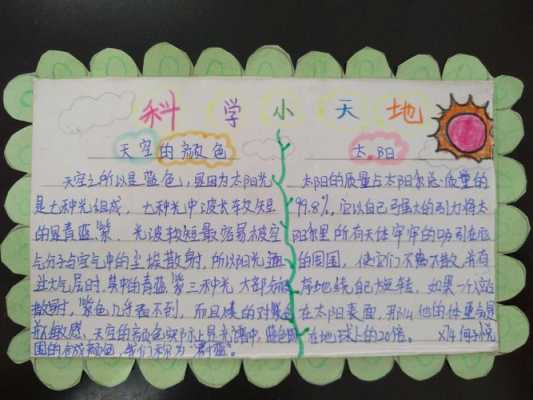 科学小天地
天空的颜色
天空之所以是蓝色,是因为太阳光
是七种光组成,七种光中波长较短
的是青蓝紫,光波较短最容易被空
气分子与空气中的尘埃散射,所以阳光通
过大气层时,其中的青蓝紫三种光大部分被
散射,紫色几乎看不到,而且
敏感,天空的颜色实际上是光谱中蓝色
的合成颜色,我们称为
太阳
太阳的质量占太阳系总质量的
99.8%,它以自己强大的引力将太
阳系里所有天体牢牢的吸引在
的周围,使它们不离不散,有
序地绕自己旋转,如果一个人站
在太阳表面,那么他的体重会是
在地球上的20倍。